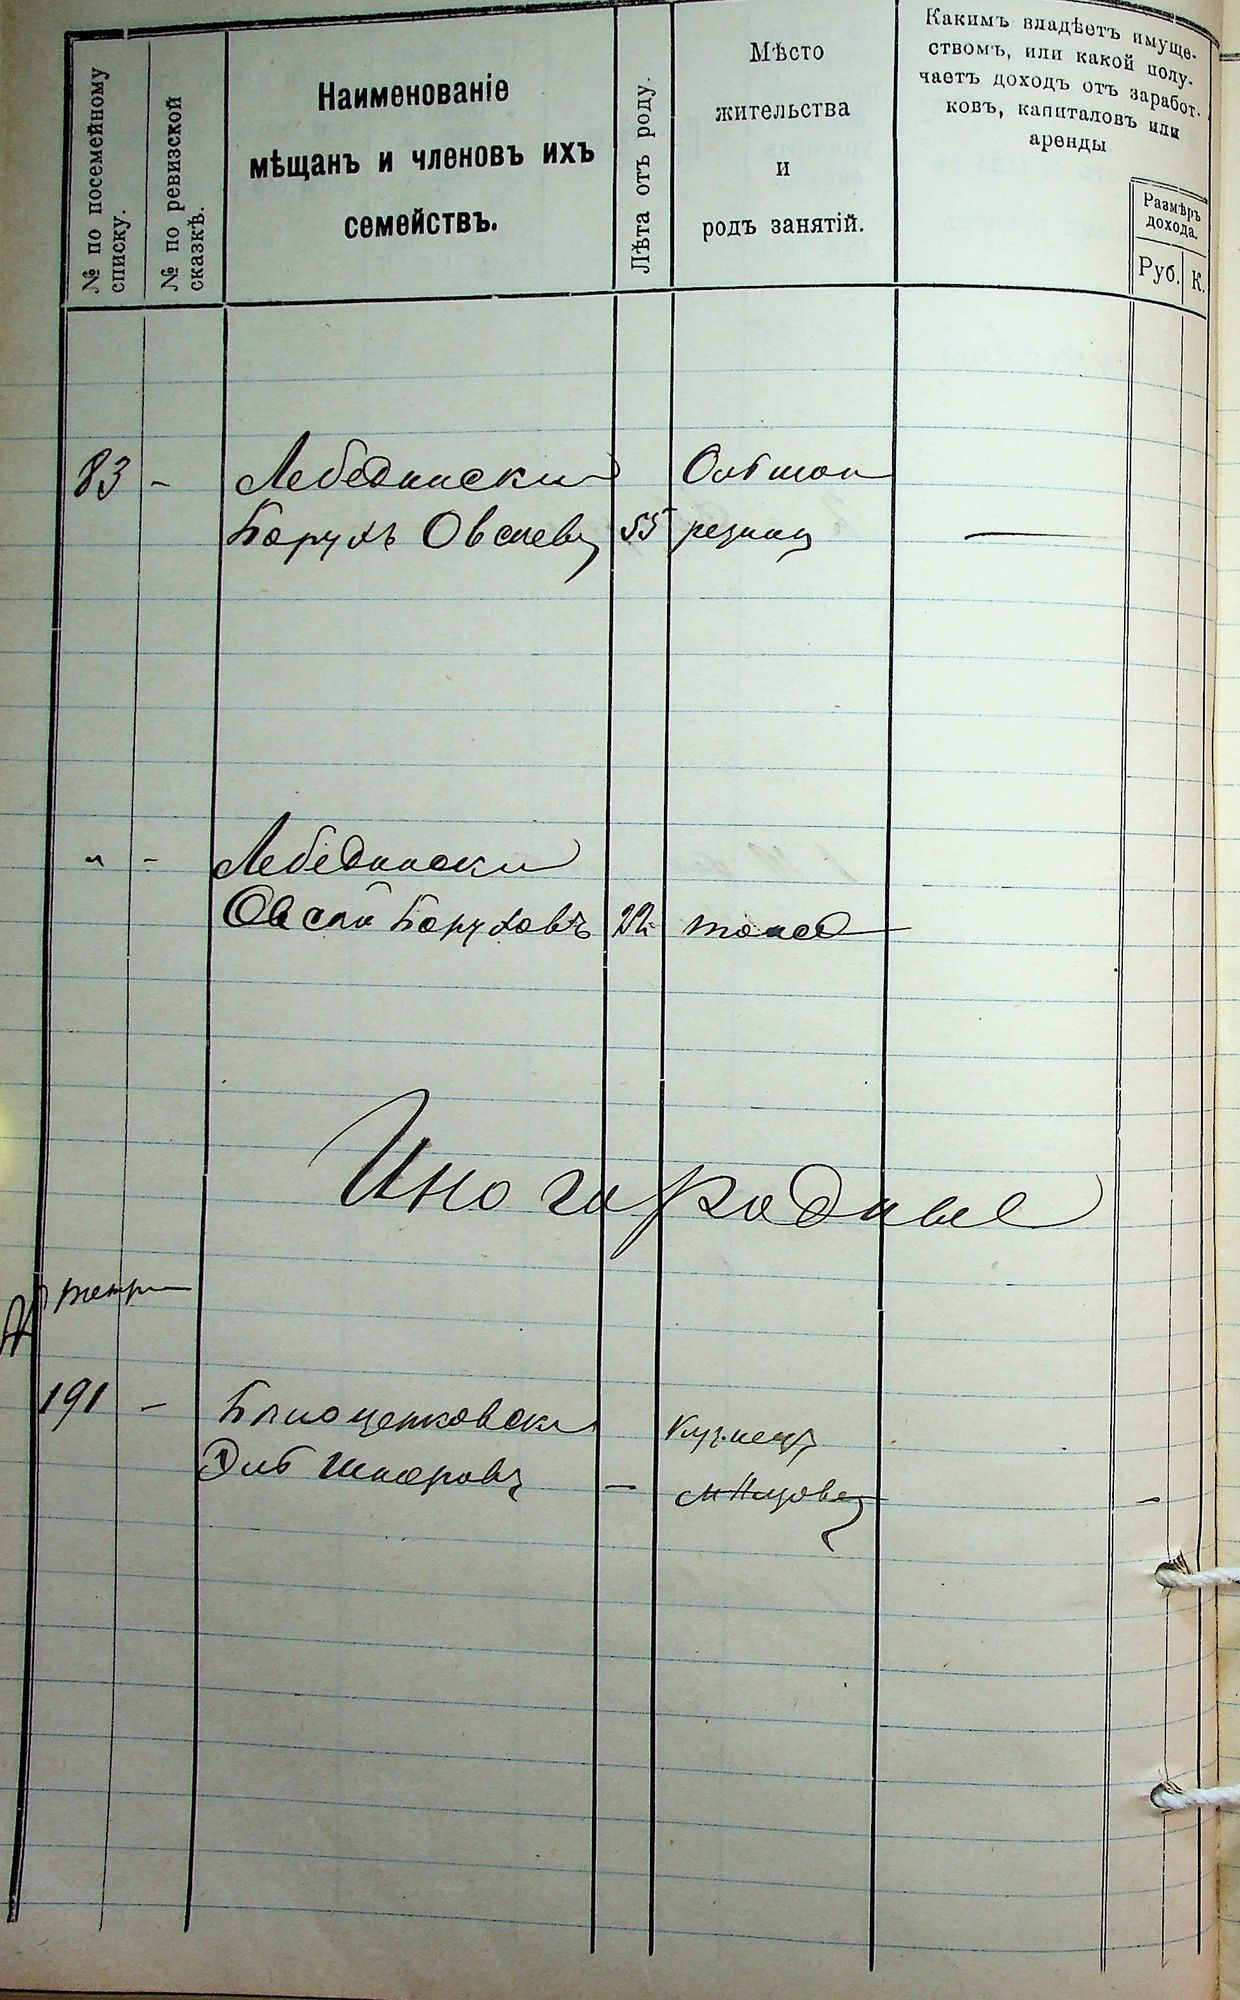 № по посемейному
списку.
№ по ревизской
сказкѣ.
Наименованіе
мѣщанъ и членовъ ихъ
семействъ.
Лѣта отъ роду.
Мѣсто
жительства
и
родъ занятій.
Каким​ъ владѣетъ имуще-
ствомъ, или какой полу-
чаетъ доходъ отъ заработ-
ковъ, капиталовъ или
аренды
Размѣръ
дохода.
Руб. К.
83 - Лебедински
Борухъ Овсеевъ 55 резникъ —
" - Лебедински
Овсей Боруховъ 22 тоже
Иногородные
191 -
Кузнецъ
Эль —